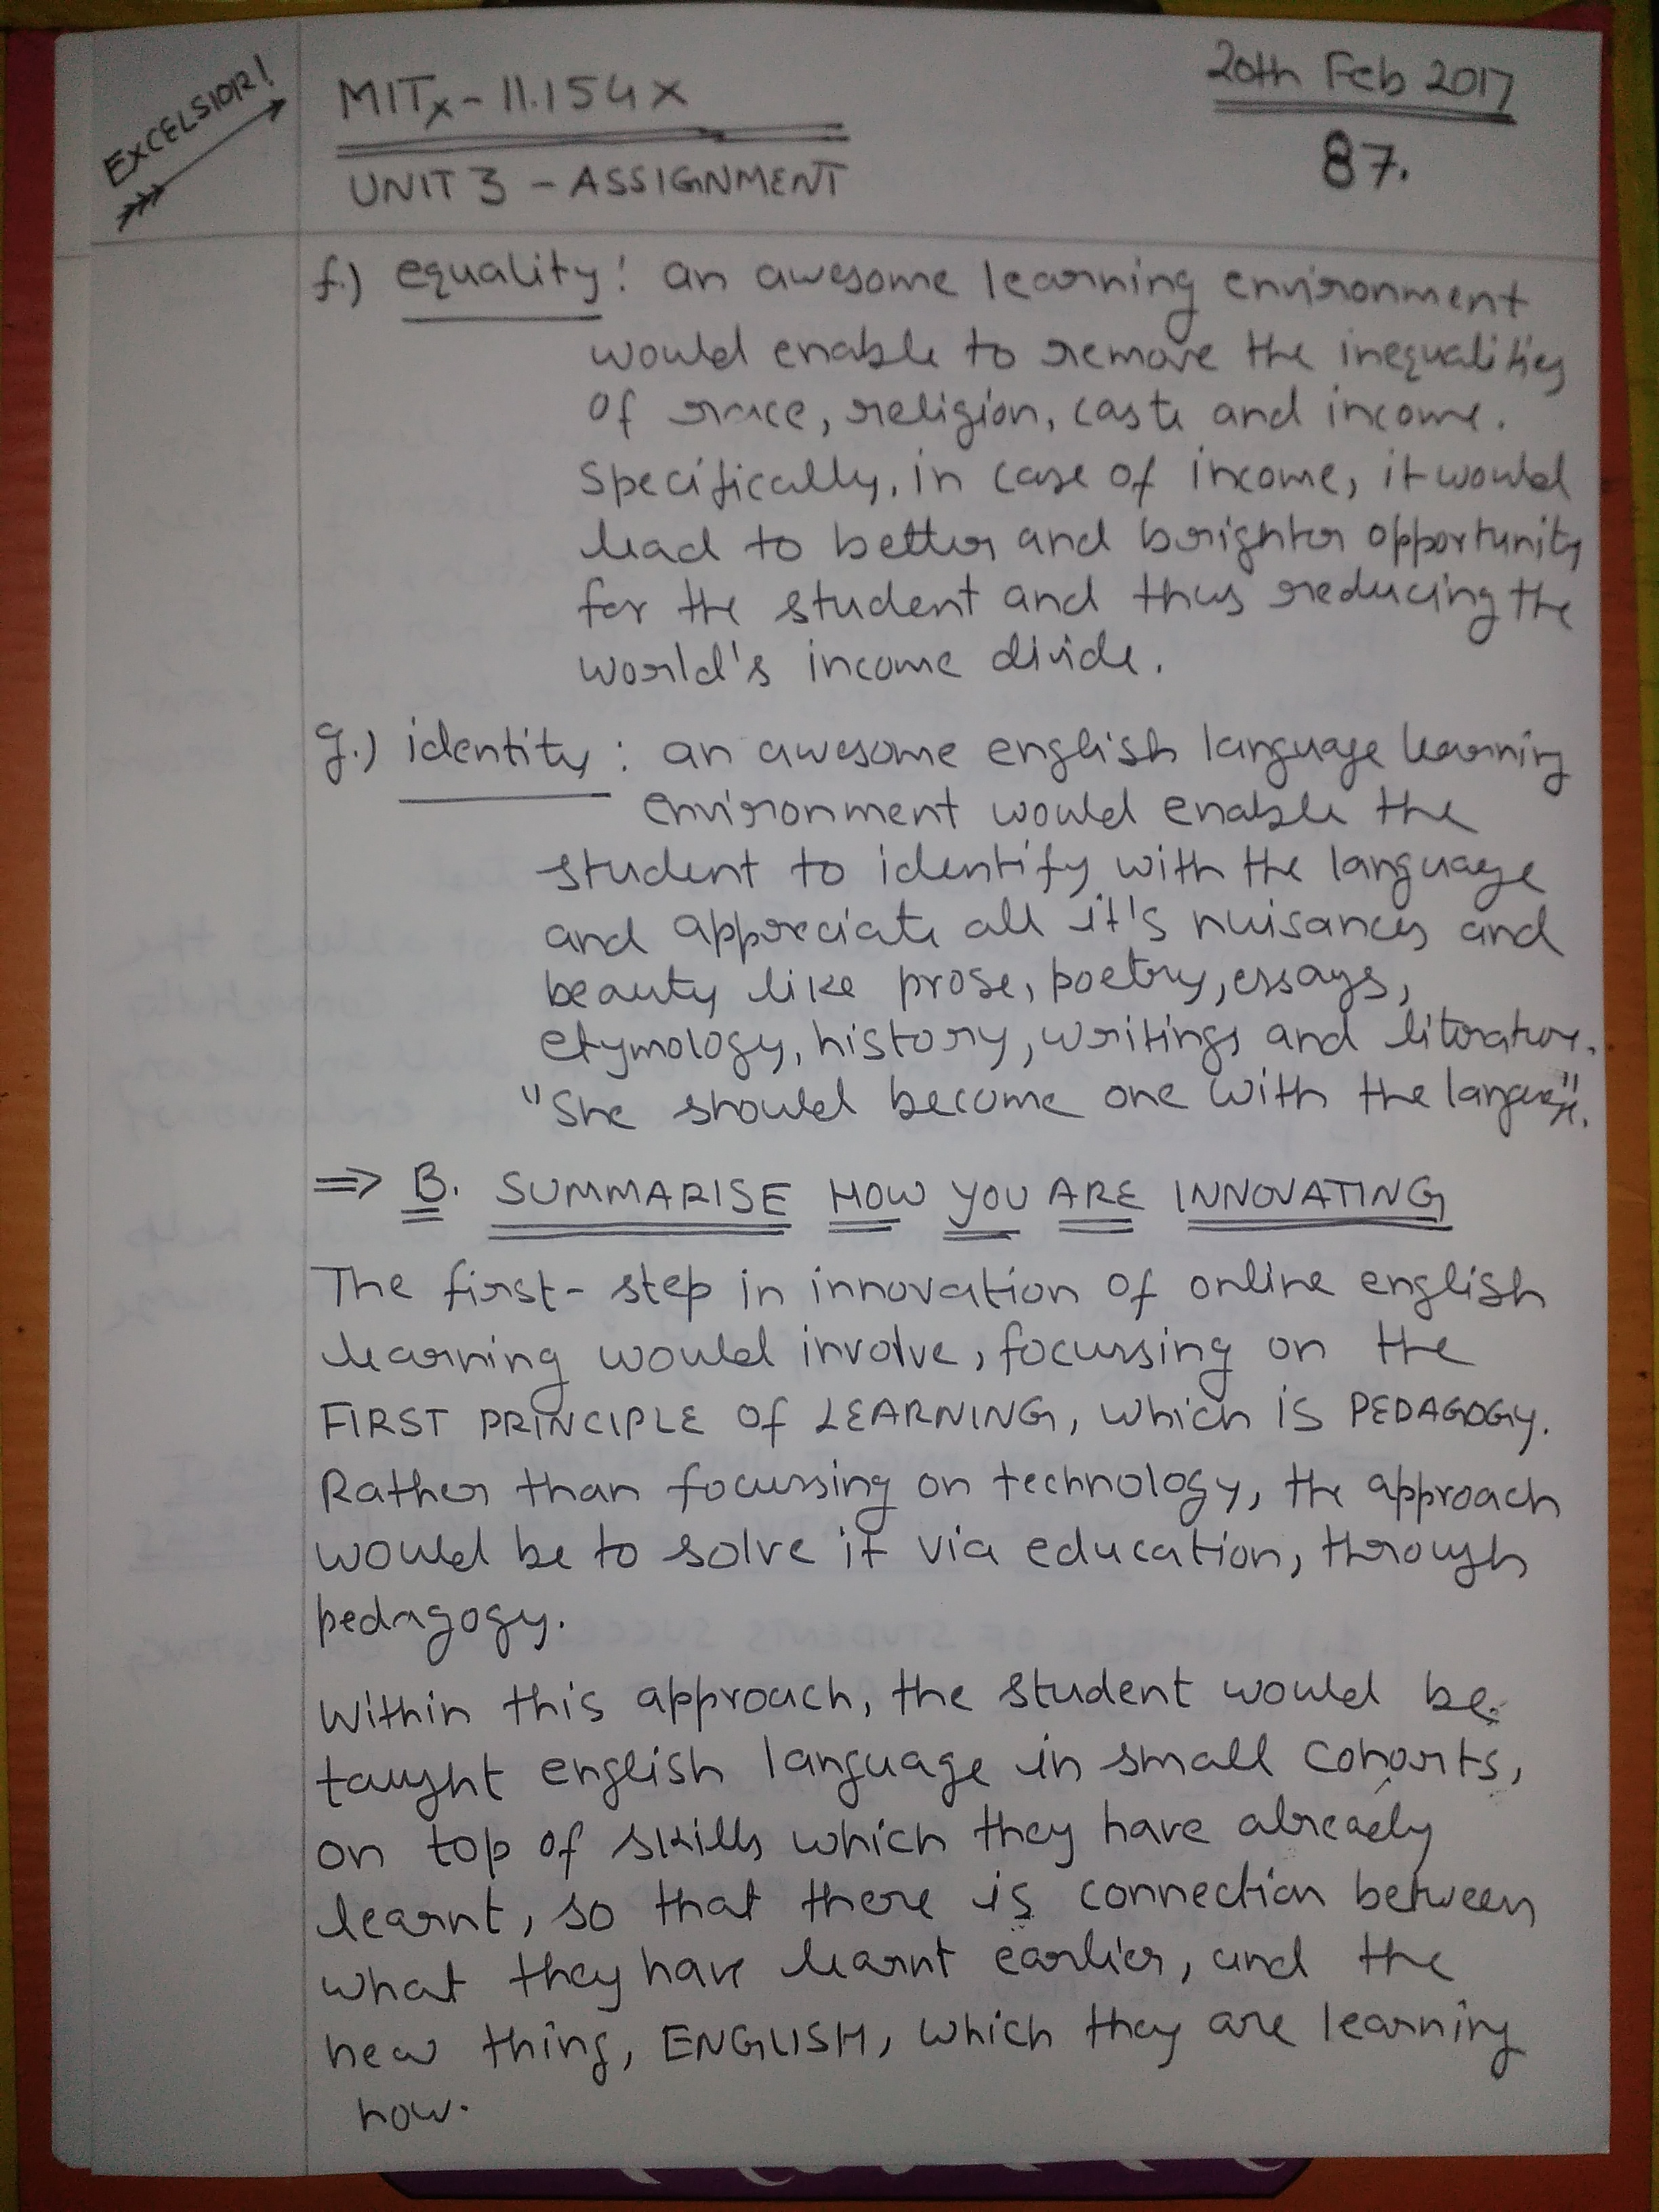 EXCELSIOR!
MITx - 11.154x
20th Feb 2017
UNIT 3 - ASSIGNMENT
87.
f.) equality: an awesome learning environment
would enable to remove the inequalities
of race, religion, caste and income.
Specifically, in case of income, it would
lead to better and brighter opportunity
for the student and thus reducing the
world's income divide.
g.) identity: an awesome english language learning
environment would enable the
student to identify with the language
and appreciate all it's nuisances and
beauty like prose, poetry, essays,
etymology, history, writings and literature.
"She should become one with the language".
⇒ B. SUMMARISE HOW YOU ARE INNOVATING
The first-step in innovation of online english
learning would involve, focussing on the
FIRST PRINCIPLE OF LEARNING, which is PEDAGOGY.
Rather than focussing on technology, the approach
would be to solve it via education, through
pedagogy.
Within this approach, the student would be
taught english language in small cohorts,
on top of skills which they have already
learnt, so that there is connection between
what they have learnt earlier, and the
new thing, ENGLISH, which they are learning
now.